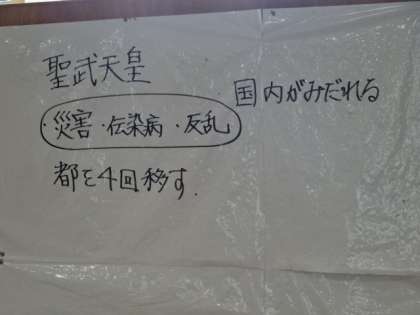 聖武天皇
・災害・伝染病・反乱
国内がみだれる
都を4回移す.